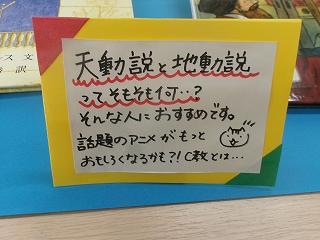 ス 文
訳
天動説と地動説
ってそもそも何‥?
そんな人におすすめです。
話題のアニメがもっと
おもしろくなるかも?! C教とは…